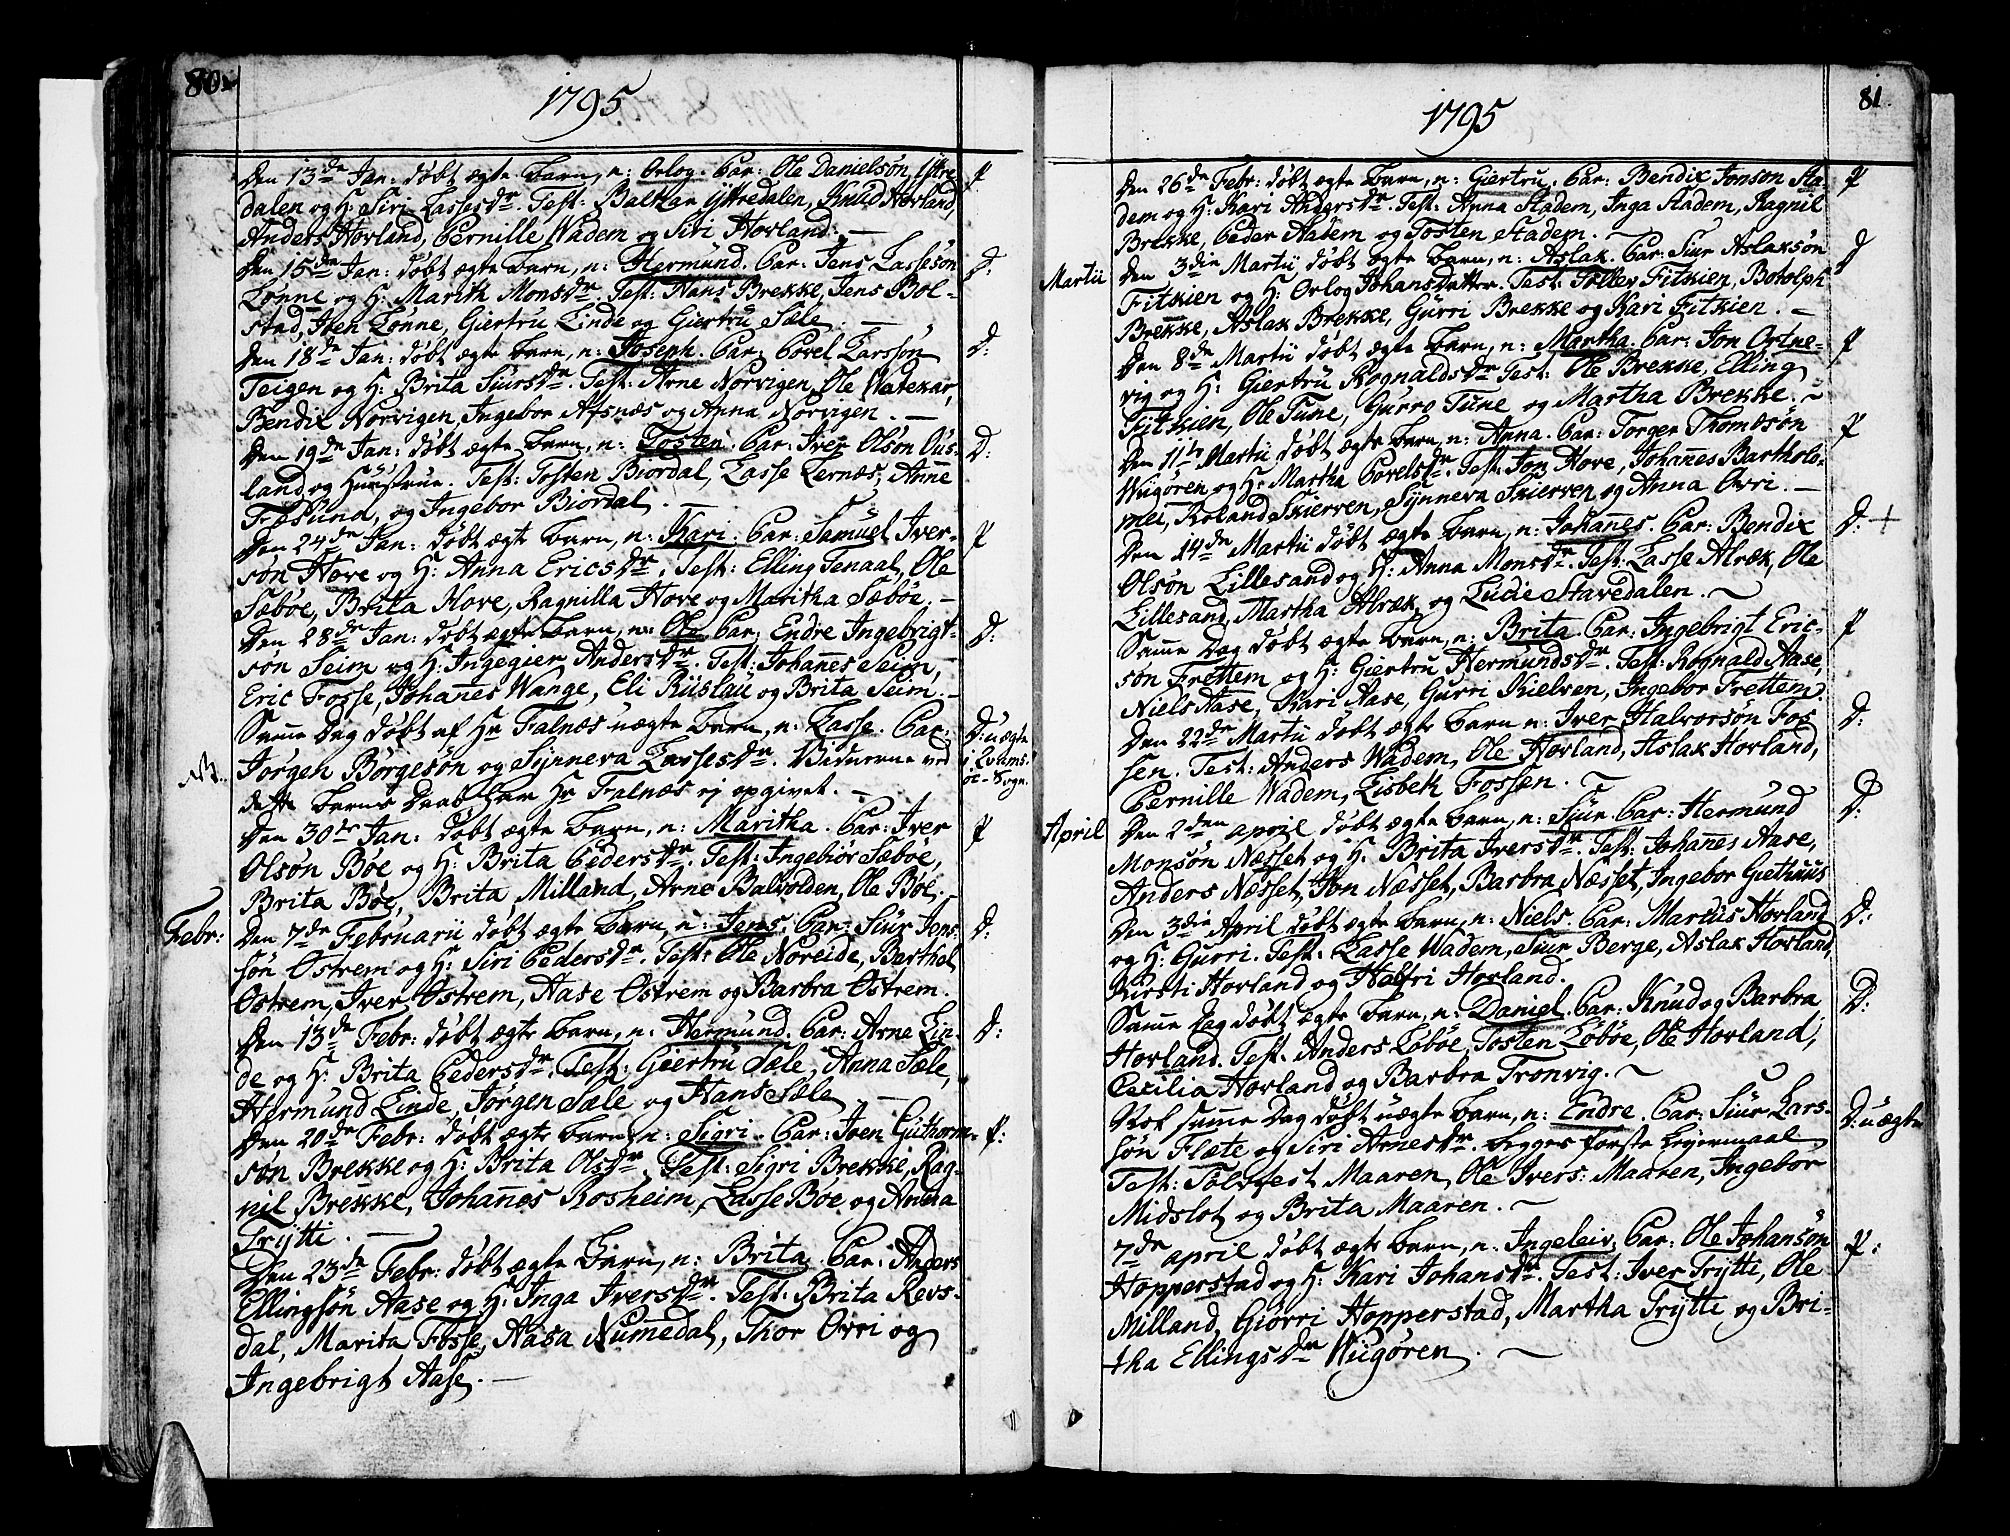 80.
1795
Den 13de Jan: døbt ægte Barn, n: Orlog. Par: Ole Danielsøn Ÿttre-
dalen og H: Siri Lassesdr. Test: Baltzar Ÿttredalen, Knud Hovland,
Anders Hovland, Pernille Wadem og Siri Hovland. —
P
Den 15de Jan: døbt ægte Barn, n: Hermund. Par: Jens Lassesøn
Lønne og H: Marith Monsdr. Test: Hans Brekke, Jens Bol-
stad, Iven Lønne, Giertru Linde og Giertru Sæle. —
D:
Den 18de Jan: døbt ægte Barn, n: Joseph. Par: Povel Larssøn
Teigen og H: Brita Siursdr. Test: Arne Norvigen, Ole
Bendix Norvigen, Ingebor Afsnæs og Anna Norvigen. —
D:
Den 19de Jan: døbt ægte Barn, n: Tosten. Par: Iver Olsøn Ous-
land og Hustrue. Test: Tosten Biordal, Lasse Lernæs, Anne
Fræsund, og Ingebor Biordal. —
D:
Den 24de Jan: døbt ægte Barn, n: Kari. Par: Samuel Iver-
søn Hove og H: Anna Ericsdr. Test: Elling Tenaal, Ole
Sæbøe, Brita Hove, Ragnilla Hove og Maritha Sæbøe. —
P
Den 28de Jan: døbt ægte Barn, n: Ole. Par: Endre Ingebrigt-
søn Seim og H: Ingegier Andersdr. Test: Johannes Seim,
Eric Fosse, Johannes Wange, Eli Rüslau og Brita Seim. —
D:
Samme Dag døbt af Hr Falnæs uægte Barn, n: Lasse. Par:
Jørgen Børgesøn og Sÿnneva Lassesdr. Vidnerne ved
dette Barns Daab har Hr Falnæs ej opgivet. —
NB.
D: uægte
i Qvams-
øe-Sogn.
Den 30te Jan: døbt ægte Barn, n: Maritha. Par: Iver
Olsøn Bøe og H: Brita Pedersdr. Test: Ingebiør Sæbøe,
Brita Bøe, Brita Milland, Arne Balvolden, Ole Bøe. —
P
Febr:
Den 7de Februarii døbt ægte Barn, n: Jens. Par: Siur Jens-
søn Østrem og H: Siri Pedersdr. Test: Ole Noreide, Barthel
Østrem, Iver Østrem, Aase Østrem og Barbra Østrem.
D:
Den 13de Febr: døbt ægte Barn, n: Hermund. Par: Arne Lin-
de og H: Brita Pedersdr. Test: Giertru Sæle, Anna Sæle,
Hermund Linde, Jørgen Sæle og Hans Sæle. —
D:
Den 20de Febr: døbt ægte Barn, n: Sigri. Par: Iven Guthorm-
søn Brekke og H: Brita Olsdr. Test: Sigri Brekke, Rag-
nil Brekke, Johannes Rosheim, Lasse Bøe og Anna
Trÿtti. —
P:
Den 23de Febr: døbt ægte Barn, n: Brita. Par: Anders
Ellingsøn Aase og H: Inga Iversdr. Test: Brita Revs-
dal, Marita Fosse, Aasa Numedal, Thor Ovri og
Ingebrigt Aase. —
81.
1795
Den 26de Febr: døbt ægte Barn, n: Giertru. Par: Bendix Jonsøn Sta-
dem og H: Kari Andersdr. Test: Anna Stadem, Inga Stadem, Ragnil
Brekke, Peder Stadem og Tosten Stadem. —
P
Martii
Den 3die Martii døbt ægte Barn, n: Aslak. Par: Siur Aslaksøn
Fitkien og H: Orlog Johansdatter. Test: Tollev Fitkien, Botolph
Brekke, Aslak Brekke, Gurri Brekke og Kari Fitkien. —
D
Den 8de Martii døbt ægte Barn, n: Martha. Par: Jon Ortne-
vig og H: Giertru Rognaldsdr. Test: Ole Brekke, Elling
Fitkien, Ole Tune, Gurro Tune og Martha Brekke. ~
P
Den 11te Martii døbt ægte Barn, n: Anna. Par: Torger Thomesøn
Wiigøren og H: Martha Povelsdr. Test: Jon Hove, Johannes Bartholo-
mei, Roland Skierven, Sÿnneva Skierven og Anna Ovri. —
P
Den 14de Martii døbt ægte Barn, n: Johannes. Par: Bendix
Olsøn Lillesand og H: Anna Monsdr. Test: Lasse Alræk, Ole
Lillesand, Martha Alræk, og Lucie Stavedalen. ~
D: +
Samme Dag døbt ægte Barn, n: Brita. Par: Ingebrigt Eric-
søn Frettem og H: Giertru Hermundsdr. Test: Rognald Aase,
Niels Aase, Kari Aase, Gurri Kielven, Ingebor Frettem.
P
Den 22de Martii døbt ægte Barn n: Iver Halvorsøn Fos
sen. Test: Anders Wadem, Ole Hovland, Aslak Hovland,
Pernille Wadem, Lisbeth Fossen. ~
D:
April
Den 2den april døbt ægte Barn, n: Siur. Par: Hermund
Monsøn Næsset og H: Brita Iversdr. Test: Johannes Aase,
Anders Næsset, Jon Næsset, Barbra Næsset, Ingebor Giethuus
D:
Den 3die April døbt ægte Barn, n: Niels. Par: Marcus Hovland
og H: Gurri. Test: Lasse Wadem, Siur Berge, Aslak Hovland,
Kirsti Hovland og Hovland.
D:
Samme Dag døbt ægte Barn, n: Daniel. Par: Knud og Barbra
Hovland. Test: Anders Løbøe, Tosten Løbøe, Ole Hovland,
Cecilia Hovland og Barbra Tronvig. ~
D:
Nok samme Dag døbt uægte Barn, n: Endre. Par: Siur Lars-
søn Flæte og Siri Arnesdr. begges første Lejermaal
Test: Tolvfest Maaren, Ole Ivers: Maaren, Ingebor
Midslot og Brita Maaren. ~
D: uægte
7de april døbt ægte Barn, n: Ingeleiv. Par: Ole Johansøn
Hopperstad og H: Kari Johansdr. Test: Iver Trÿtti, Ole
Milland, Giørri Hopperstad, Martha Trÿtti, og Bri-
tha Ellingsdr Wiigøren. ~
P: